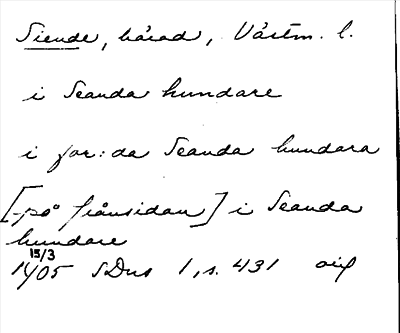 Siende, härad, Västm. l.
i Seanda hundare
i for: da Seanda hundara
[-på frånsidan] i Seanda
hundare
15/3
1405 SDns 1, s. 431 avs